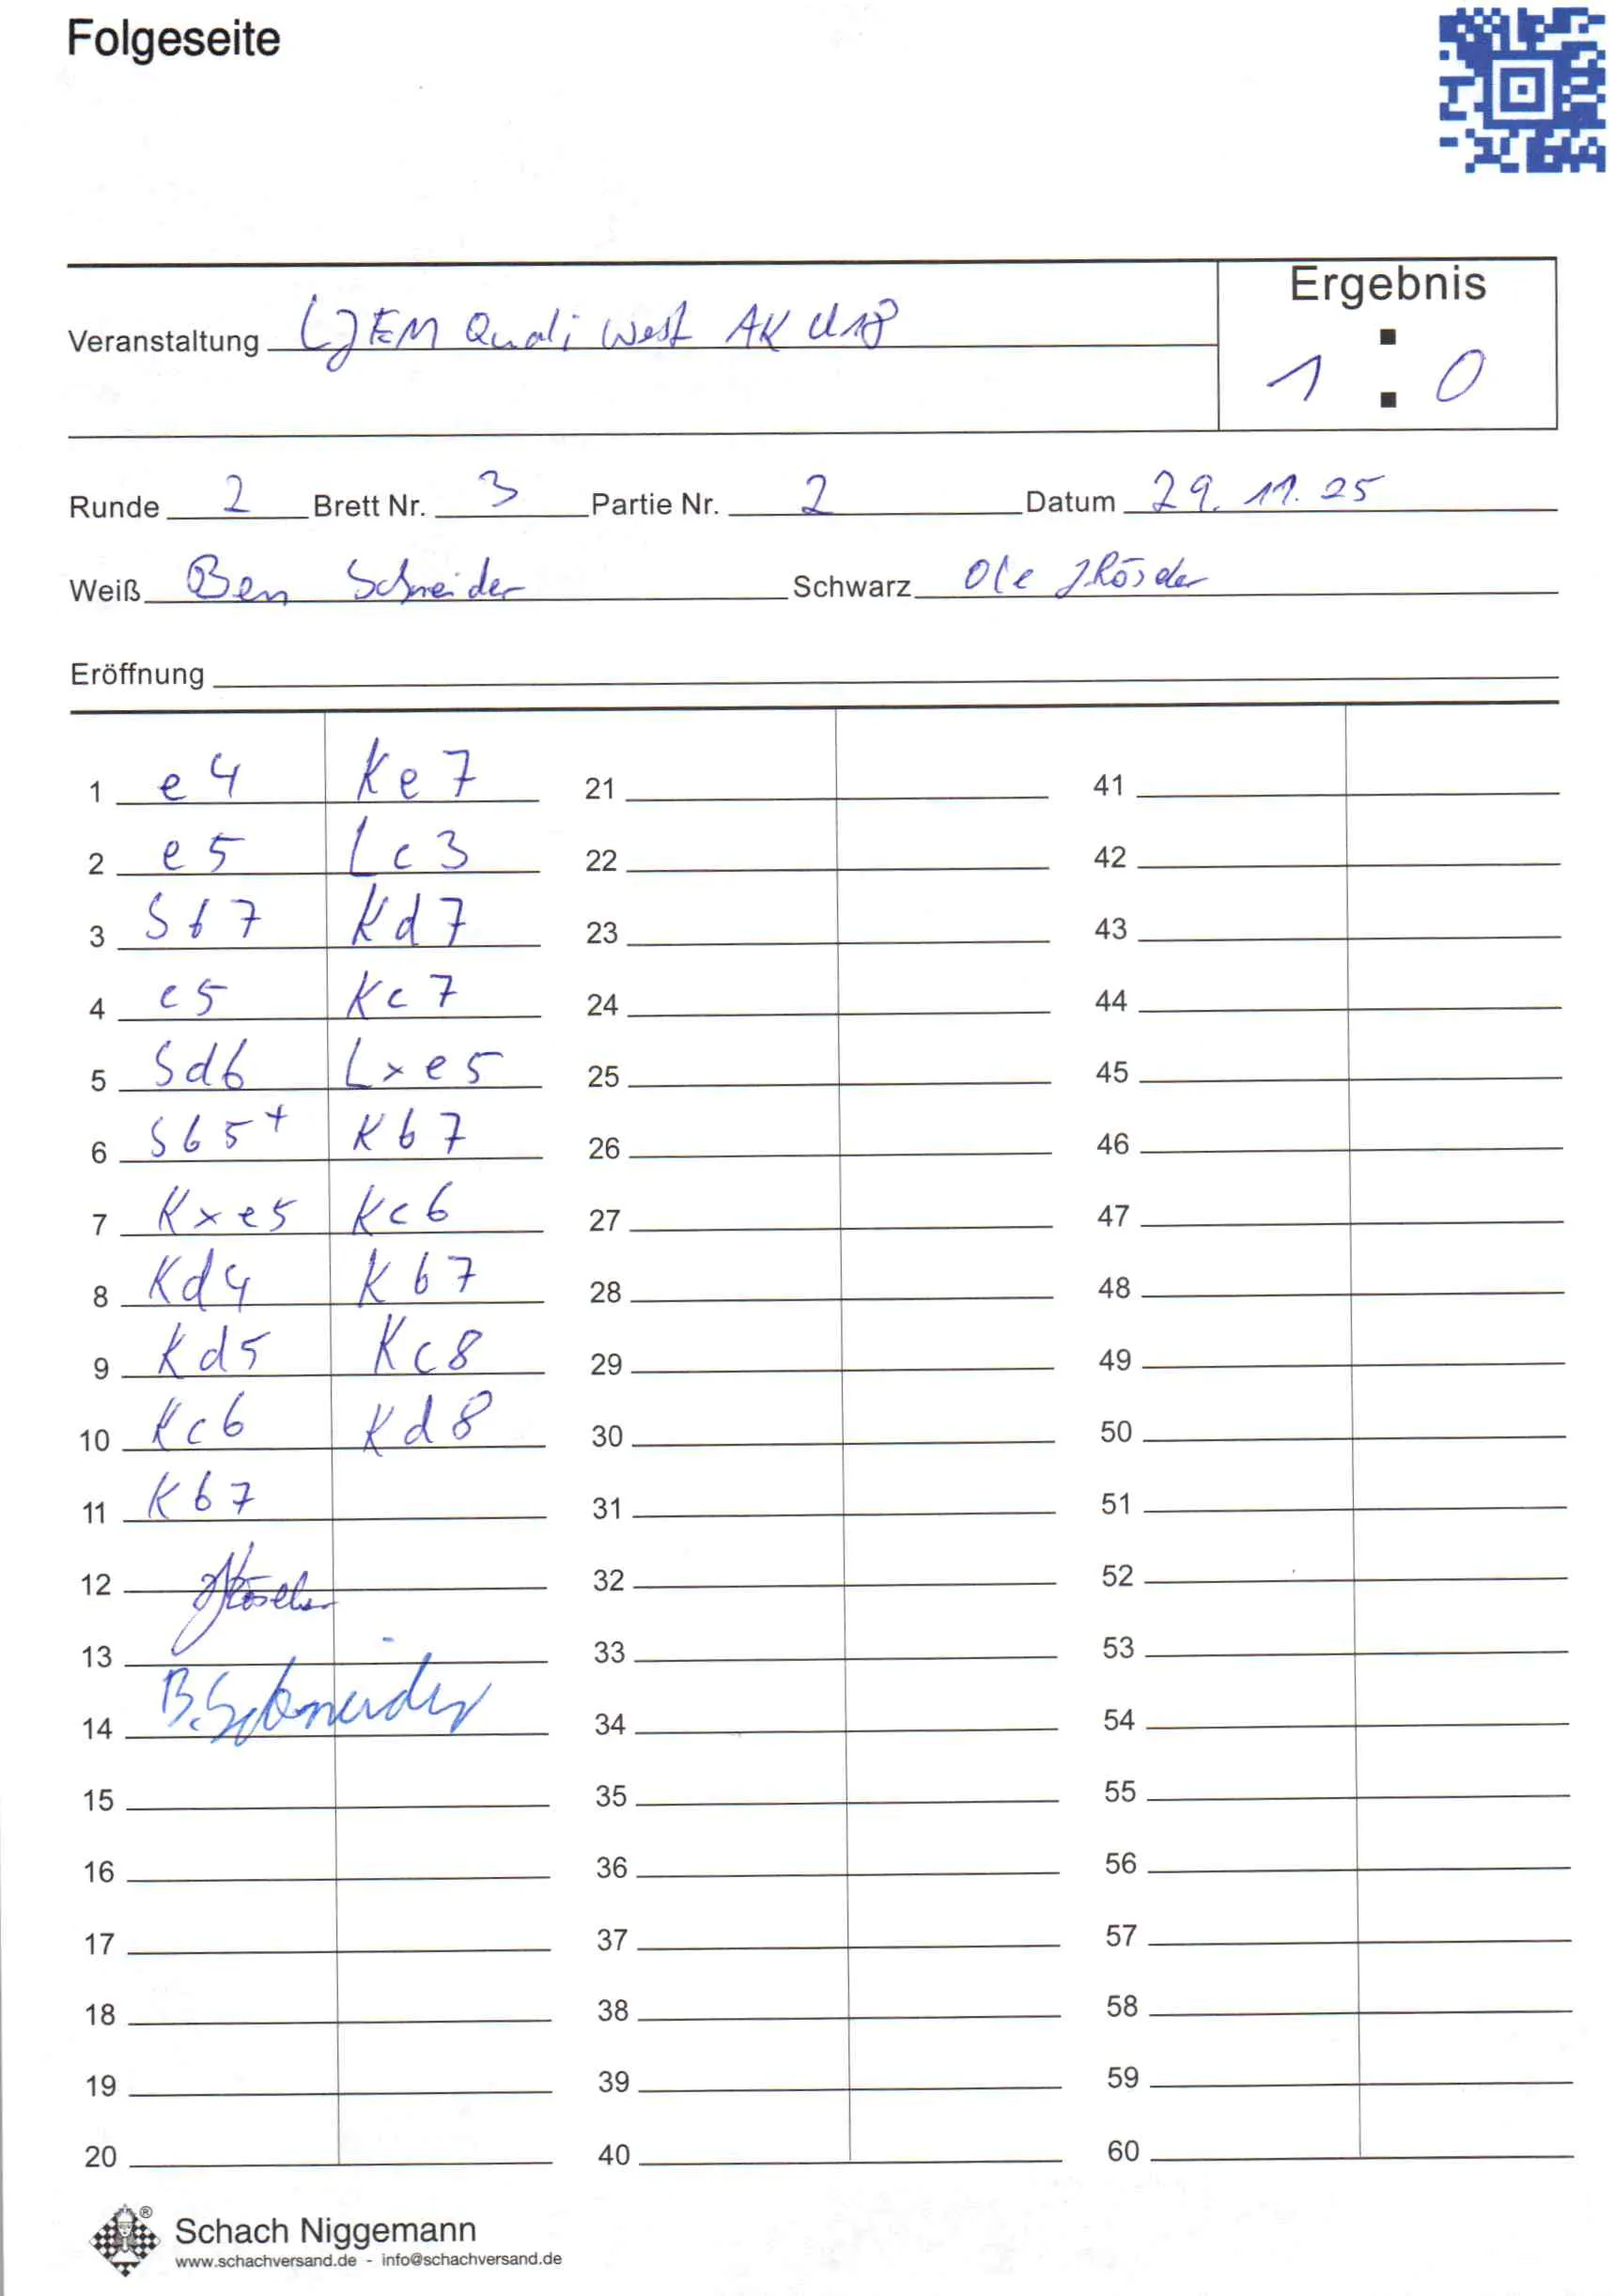 Folgeseite
Veranstaltung LJEM Quali West AK U18
Ergebnis
1 : 0
Runde 2 Brett Nr. 3 Partie Nr. 2 Datum 29.11.25
Weiß Ben Schneider Schwarz Ole
Eröffnung
1 e4 Ke7 21 41
2 e5 Lc3 22 42
3 Sb7 Kd7 23 43
4 c5 Kc7 24 44
5 Sd6 Lxe5 25 45
6 Sb5+ Kb7 26 46
7 Kxe5 Kc6 27 47
8 Kd4 Kb7 28 48
9 Kd5 Kc8 29 49
10 Kc6 Kd8 30 50
11 Kb7 31 51
12 32 52
13 33 53
14 B. Schneider 34 54
15 35 55
16 36 56
17 37 57
18 38 58
19 39 59
20 40 60
®
Schach Niggemann
www.schachversand.de - info@schachversand.de